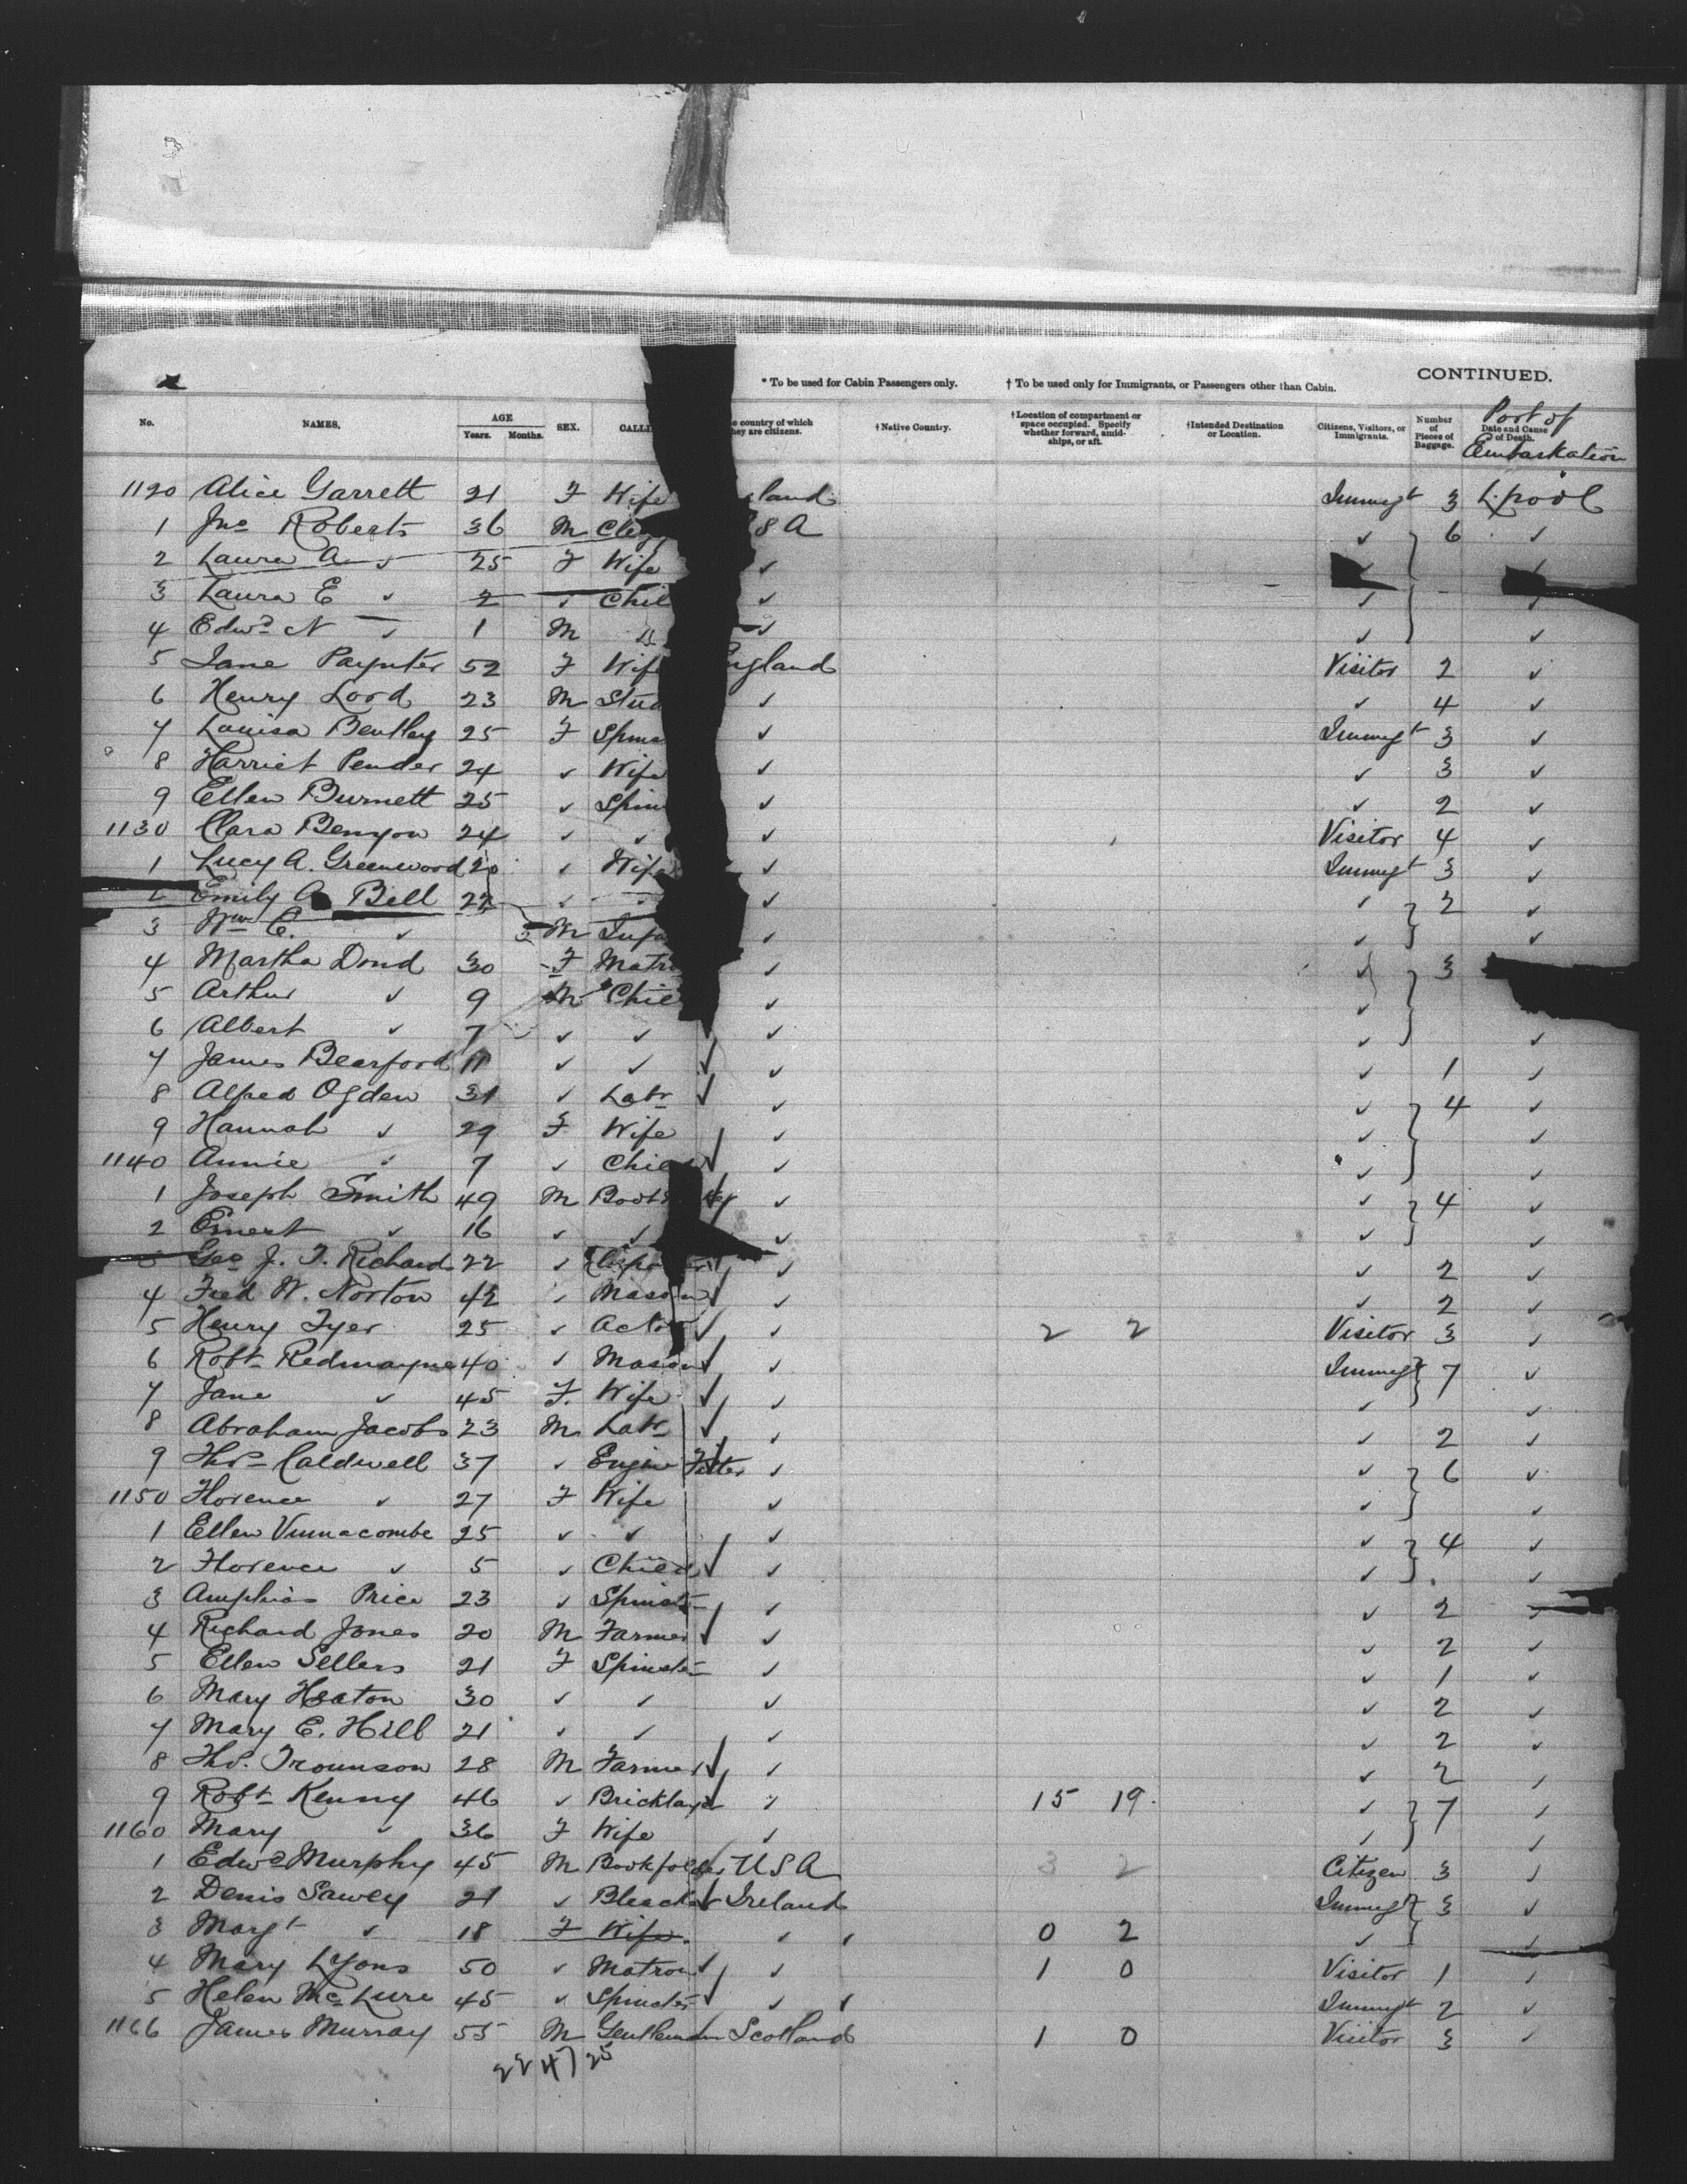 CONTINUED.
* To be used for Cabin Passengers only. † To be used only for Immigrants, or Passengers other than Cabin.
No. NAMES. AGE Years. Months. SEX. CALLI e country of which hey are citizens. †Native Country. †Location of compartment or space occupied. Specify whether forward, amidships, or aft. †Intended Destination or Location. Citizens, Visitors, or Immigrants. Number of Pieces of Baggage. Date and Cause of Death. Port of Embarkation
1120 Alice Garrett 21 F Wife land Immigt 3 L'pool
1 Jno Roberts 36 M Cler S A ✓ 6 ✓
2 Laura A ✓ 25 F Wife ✓ ✓ ✓
3 Laura E ✓ 2 ✓ Chil ✓ ✓ ✓
4 Edwd N ✓ 1 M ✓ ✓ ✓
5 Jane Paynter 52 F Wife England Visitor 2 ✓
6 Henry Lord 23 M Stud ✓ ✓ 4 ✓
7 Louisa Bentley 25 F Spins ✓ Immigt 3 ✓
8 Harriet Pender 24 ✓ Wife ✓ ✓ 3 ✓
9 Ellen Burnett 25 ✓ Spin ✓ ✓ 2 ✓
1130 Clara Benyon 24 ✓ ✓ ✓ Visitor 4 ✓
1 Lucy A. Greenwood 20 ✓ Wife ✓ Immigt 3 ✓
2 Emily A Bell 22 ✓ ✓ ✓ 2 ✓
3 Wm C. ✓ M Infa ✓ ✓ ✓
4 Martha Dond 30 F Matr ✓ ✓ 3
5 Arthur ✓ 9 M Chil ✓ ✓
6 Albert ✓ 7 ✓ ✓ ✓ ✓ ✓
7 James Bearford 11 ✓ ✓ ✓ ✓ 1 ✓
8 Alfred Ogden 31 ✓ Labr ✓ ✓ 4 ✓
9 Hannah ✓ 29 F Wife ✓ ✓ ✓
1140 Annie ✓ 7 ✓ Child ✓ ✓ ✓
1 Joseph Smith 49 M Boot ✓ ✓ 4 ✓
2 Ernest ✓ 16 ✓ ✓ ✓ ✓ ✓
Geo J. T. Richard 22 ✓ ✓ ✓ 2 ✓
4 Fred W. Norton 42 ✓ Mason ✓ ✓ 2 ✓
5 Henry Tyer 25 ✓ Actor ✓ 2 2 Visitor 3 ✓
6 Robt Redmayne 40 ✓ Mason ✓ Immigt 7 ✓
7 Jane ✓ 45 F. Wife ✓ ✓ ✓
8 Abraham Jacobs 23 M Labr ✓ ✓ 2 ✓
9 Thos Caldwell 37 ✓ Engine Fitter ✓ ✓ 6 ✓
1150 Florence ✓ 27 F Wife ✓ ✓ ✓
1 Ellen Vinnacombe 25 ✓ ✓ ✓ ✓ 4 ✓
2 Florence ✓ 5 ✓ Child ✓ ✓ ✓
3 Amphias Price 23 ✓ Spinstr ✓ ✓ 2 ✓
4 Richard Jones 20 M Farmer ✓ ✓ 2 ✓
5 Ellen Sellers 21 F Spinster ✓ ✓ 1 ✓
6 Mary Heaton 30 ✓ ✓ ✓ ✓ 2 ✓
7 Mary E. Hill 21 ✓ ✓ ✓ ✓ 2 ✓
8 Thos. Trounson 28 M Farmer ✓ ✓ 2 ✓
9 Robt Kenny 46 ✓ Bricklayer ✓ 15 19 ✓ 7 ✓
1160 Mary ✓ 36 F Wife ✓ ✓ ✓
1 Edwd Murphy 45 M Bookfolder USA 3 2 Citizen 3 ✓
2 Denis Sawey 21 ✓ Bleacher Ireland Immigt 3 ✓
3 Margt ✓ 18 F Wife ✓ 0 2 ✓ ✓
4 Mary Lyons 50 ✓ Matron ✓ 1 0 Visitor 1 ✓
5 Helen McLure 45 ✓ Spinster ✓ Immigt 2 ✓
1166 James Murray 55 M Gentleman Scotland 1 0 Visitor 3 ✓
22 47 25